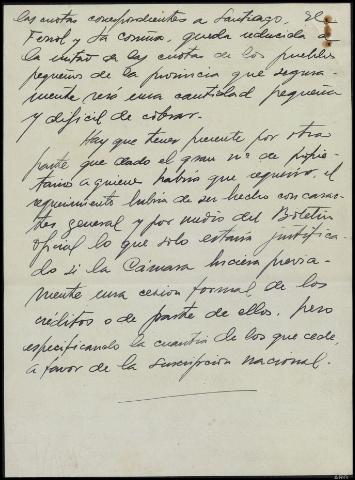 las cuotas correspondientes a Santiago, El
Ferrol y La Coruña, queda reducida a
la mitad de las cuotas de los pueblos
pequeños de la provincia que segura-
mente será una cantidad pequeña
y dificil de cobrar.
Hay que tener presente por otra
parte que dado el gran nº de propie-
tarios a quienes habría que requerir, el
requerimiento habria de ser hecho con carac-
ter general y por medio del Boletin
Oficial lo que solo estaría justifica-
do si la Cámara hiciera previa-
mente una cesion formal de los
créditos o de parte de ellos, pero
especificando la cuantía de los que cede,
a favor de la suscripcion nacional.